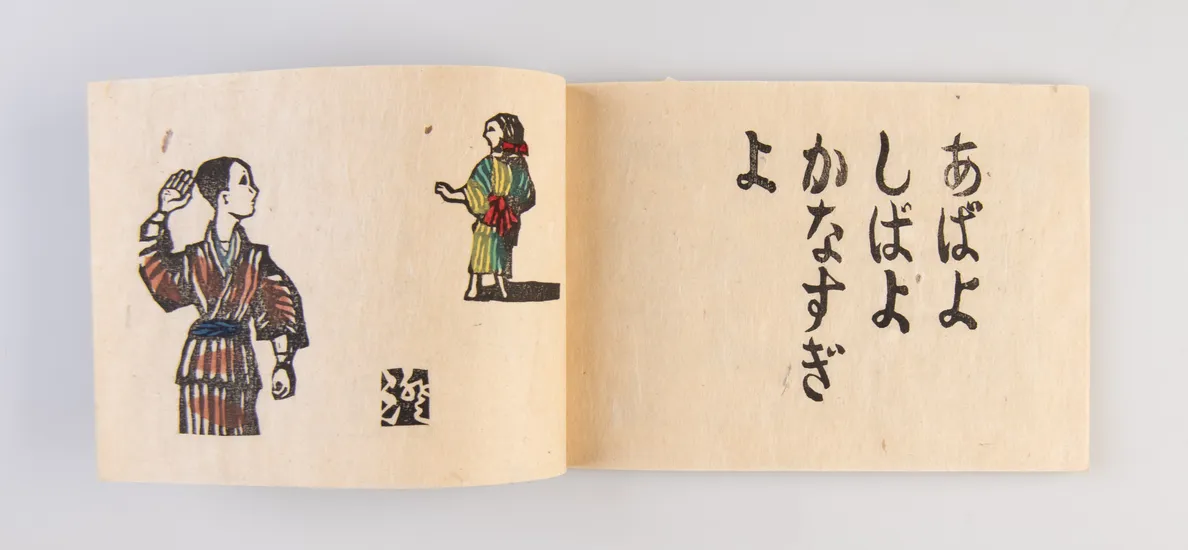 あばよ
しばよ
かなすぎ
よ